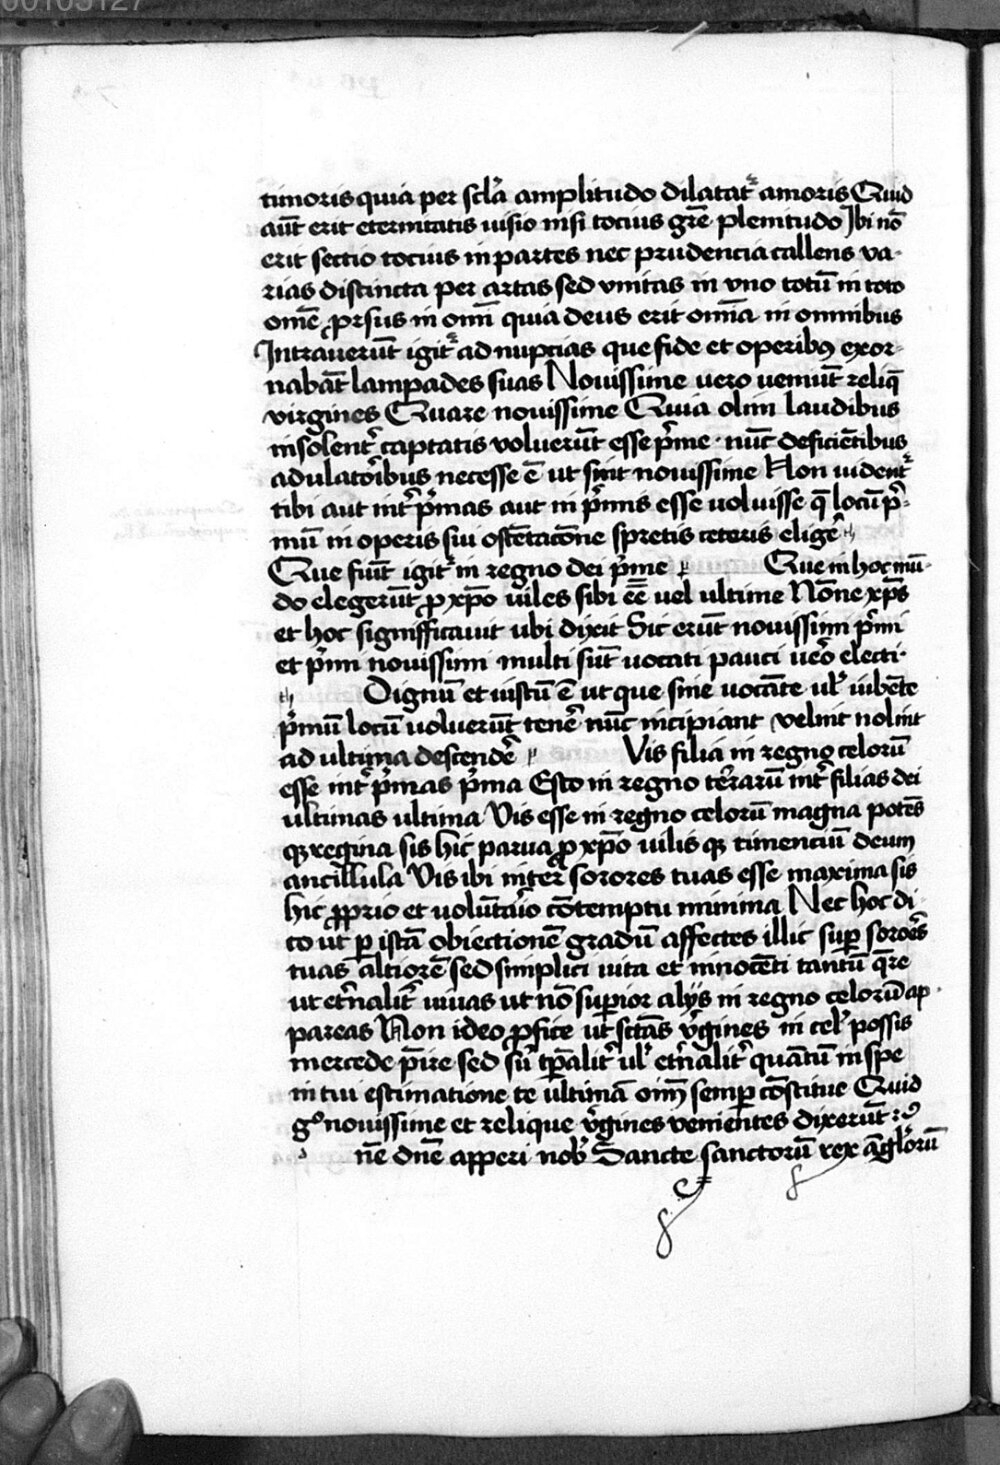 timoris quia per scl̄a amplitudo dilatat᷑ amoris Quid
aūt erit eternitatis uisio nisi tocius gr̄e plenitudo Ibi nō
erit sectio tocius in partes nec prudencia callens va-
rias distincta per artas sed vnitas in vno totū in toto
om̄e ꝓrsus in om̄i quia deus erit om̄ia in omnibus
Intrauerūt igit᷑ ad nupcias que fide et operibꝰ exor-
nabāt lampades suas Nouissime uero ueniūt reliq̄
virgines Quare nouissime Quia olim laudibus
insolent᷑ captatis voluerūt esse p̄me · nūc deficiētibus
adulatōibus necesse ē ut sint nouissime Non uident᷑
tibi aut int᷑ p̄mas aut in p̄mis esse uoluisse q̄ locū p̄-
mū in operis sui ostētacōne spretis ceteris elige᷑
Que fiūt igit᷑ in regno dei p̄me Que in hoc mū-
do elegerūt ꝓ xp̄o uiles sibi ēē uel ultime Nōne xp̄s
et hoc significauit ubi dixit Sic erūt nouissimi p̄mi
et p̄mi nouissimi multi sūt uocati pauci ūo electi ·
Dignū et iustū ē ut que sine uocāte ul᷑ iubēte
p̄mū locū uoluerūt tene᷑ nūc incipiant velint nolint
ad ultima descende᷑ Vis filia in regno celorū
esse int᷑ p̄mas p̄ma Esto in regno t᷑rarū int᷑ filias dei
ultimas ultima Vis esse in regno celorū magna potēs
qꝫ regina sis hic parua ꝓ xp̄o uilis qꝫ timenciū deum
ancillula Vis ibi inter sorores tuas esse maxima sis
hic ꝓprio et uolūtaīo cōtemptu minima Nec hoc di-
co ut ꝑ istā obiectionē gradū affectes illic suꝑ sorōes
tuas altiorē sed simplici uita et innocēti tantū q̄re
ut et᷑nalit᷑ uiuas ut nō superior alijs in regno celorū ap-
pareas Non ideo ꝓfice ut sctās v᷑gines in cel᷑ possis
mercede p̄ire sed sū tꝑalit᷑ ul᷑ et᷑nalit᷑ quantū in spe
in tui estimatione te ultimā om̄i semꝑ cōstitue Quid
g° nouissime et relique v᷑gines venientes dixerūt
nē dn̄e apperi nob᷑ Sancte sanctorū rex āgl᷑orū